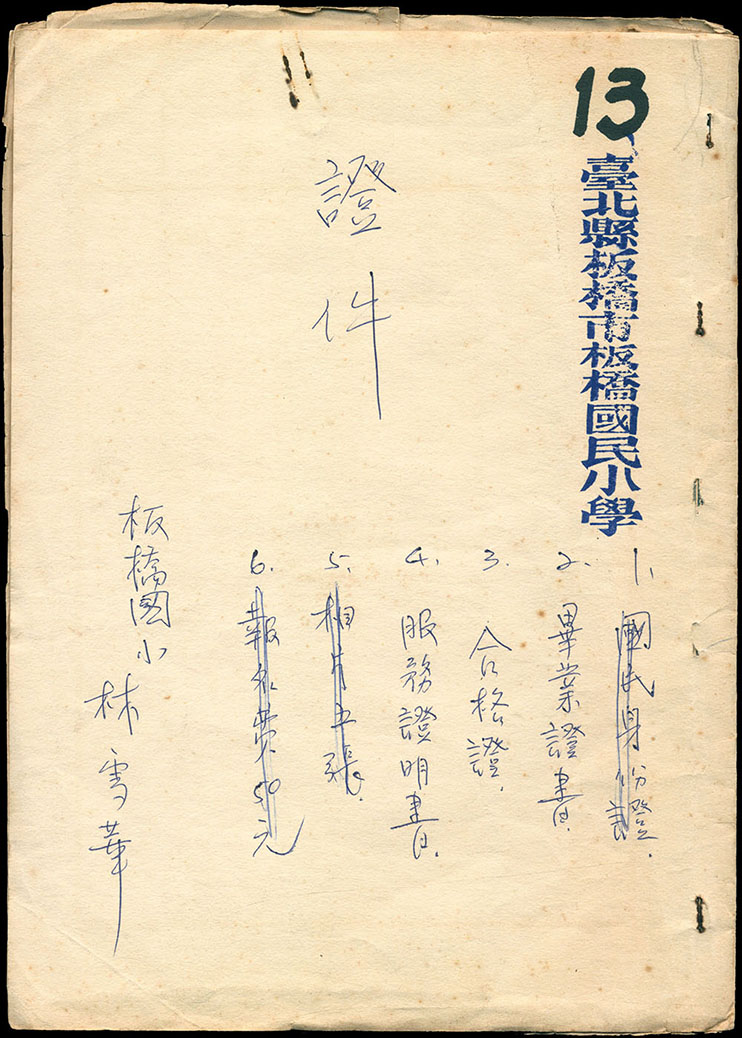 13
臺北縣板橋市板橋國民小學
證件
1. 國民身份證.
2. 畢業證書.
3. 合格證.
4. 服務證明書.
5. 相片五張.
6. 報名費50元
板橋國小
林雪華